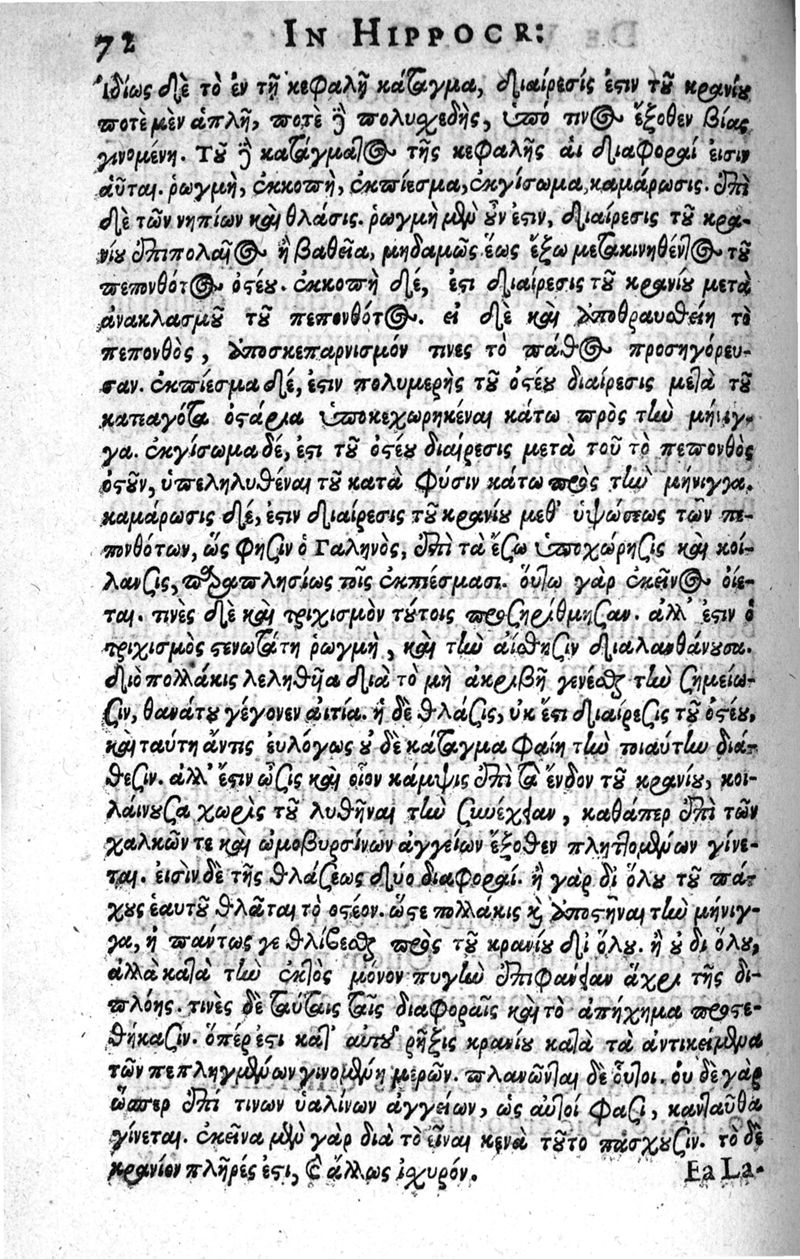 72 IN HIPPOCR:
Ἰδίως δὲ τὸ ἐν τῇ κεφαλῇ κάταγμα, διαίρεσίς ἐστιν τοῦ κρανίου
ποτὲ μὲν ἁπλῆ, ποτὲ ἢ πολυσχεδὴς, ὑπό τινος ἔξοθεν βίας
γινομένη. Τοῦ ἢ κατάγματος τῆς κεφαλῆς αἱ διαφοραί εἰσιν
αὗται. ῥωγμὴ, ἐκκοπὴ, ἐκπίεσμα, ἐκγίσωμα, καμάρωσις. ἐπὶ
δὲ τῶν νηπίων καὶ θλάσις. ῥωγμὴ μὲν οὖν ἐστιν, διαίρεσις τοῦ κρα-
νίου ἐπιπολαῖος ἢ βαθεῖα, μηδαμῶς ἕως ἔξω μετακινηθέντος τοῦ
πεπονθότος ὀστέου. ἐκκοπὴ δέ, ἐστι διαίρεσις τοῦ κρανίου μετὰ
ἀνακλασμοῦ τοῦ πεπονθότος. εἰ δὲ καὶ ἀποθραυσθείη τὸ
πεπονθὸς, ἀποσκεπαρνισμόν τινες τὸ πάθος προσηγόρευ-
σαν. ἐκπίεσμα δέ, ἐστιν πολυμερὴς τοῦ ὀστέου διαίρεσις μετὰ τοῦ
κατιαγότα ὀστάρια ὑποκεχωρηκέναι κάτω πρὸς τὴν μήνιγ-
γα. ἐκγίσωμα δέ, ἐστι τοῦ ὀστέου διαίρεσις μετὰ τοῦ τὸ πεπονθὸς
ὀστοῦν, ὑπεληλυθέναι τοῦ κατὰ φύσιν κάτω πρὸς τὴν μήνιγγα.
καμάρωσις δέ, ἐστιν διαίρεσις τοῦ κρανίου μεθ' ὑψώσεως τῶν πε-
πονθότων, ὥς φησιν ὁ Γαληνὸς, ἐπὶ τὰ ἔξω ὑποχώρησις καὶ κοί-
λανσις, παραπλησίως τοῖς ἐκπιέσμασι. οὕτω γὰρ ἐκεῖνος οἴε-
ται. τινὲς δὲ καὶ τριχισμὸν τούτοις προσηρίθμησαν. ἀλλ' ἐστιν ὁ
τριχισμὸς στενωτάτη ῥωγμὴ, καὶ τὴν αἴσθησιν διαλανθάνουσα.
διὸ πολλάκις λεληθυῖα διὰ τὸ μὴ ἀκριβῆ γενέσθαι τὴν σημείω-
σιν, θανάτου γέγονεν αἰτία. ἡ δὲ θλάσις, οὐκ ἔστι διαίρεσις τοῦ ὀστέου,
καὶ ταύτη ἄντις εὐλόγως οὐδὲ κάταγμα φαίη τὴν τοιαύτην διά-
θεσιν. ἀλλ' ἔστιν ὦσις καὶ οἷον κάμψις ἐπὶ τὰ ἔνδον τοῦ κρανίου, κοι-
λαίνουσα χωρὶς τοῦ λυθῆναι τὴν συνέχειαν, καθάπερ ἐπὶ τῶν
χαλκῶν τε καὶ ὠμοβυρσίνων ἀγγείων ἔξοθεν πληττομένων γίνε-
ται. εἰσὶν δὲ τῆς θλάσεως δύο διαφοραί. ἢ γὰρ δι ὅλου τοῦ πά-
χους ἑαυτοῦ θλᾶται τὸ ὀστέον. ὥστε πολλάκις καὶ ἀποστῆναι τὴν μήνιγ-
γα, ἢ πάντως γε θλίβεσθαι πρὸς τοῦ κρανίου δι ὅλου. ἢ οὐ δι ὅλου,
ἀλλὰ κατὰ τὴν ἐκτὸς μόνον πυγὴν ἐπιφανείαν ἄχρι τῆς δι-
πλόης. τινὲς δὲ ταύταις ταῖς διαφοραῖς καὶ τὸ ἀπήχημα προστε-
θήκασιν. ὅπέρ ἐστι κατ' αὐτοὺς ῥῆξις κρανίου κατὰ τὰ ἀντικείμενα
τῶν πεπληγμένων γινομένη μερῶν. πλανῶνται δὲ οὗτοι. οὐ δὲ γὰρ
ὥσπερ ἐπί τινων ὑαλίνων ἀγγείων, ὡς αὐτοί φασι, κανταῦθα
γίνεται. ἐκεῖνα μὲν γὰρ διὰ τὸ εἶναι κενὰ τοῦτο πάσχουσιν. τὸ δὲ
κρανίον πλῆρές ἐστι, καὶ ἄλλως ἰσχυρόν. Ea La-